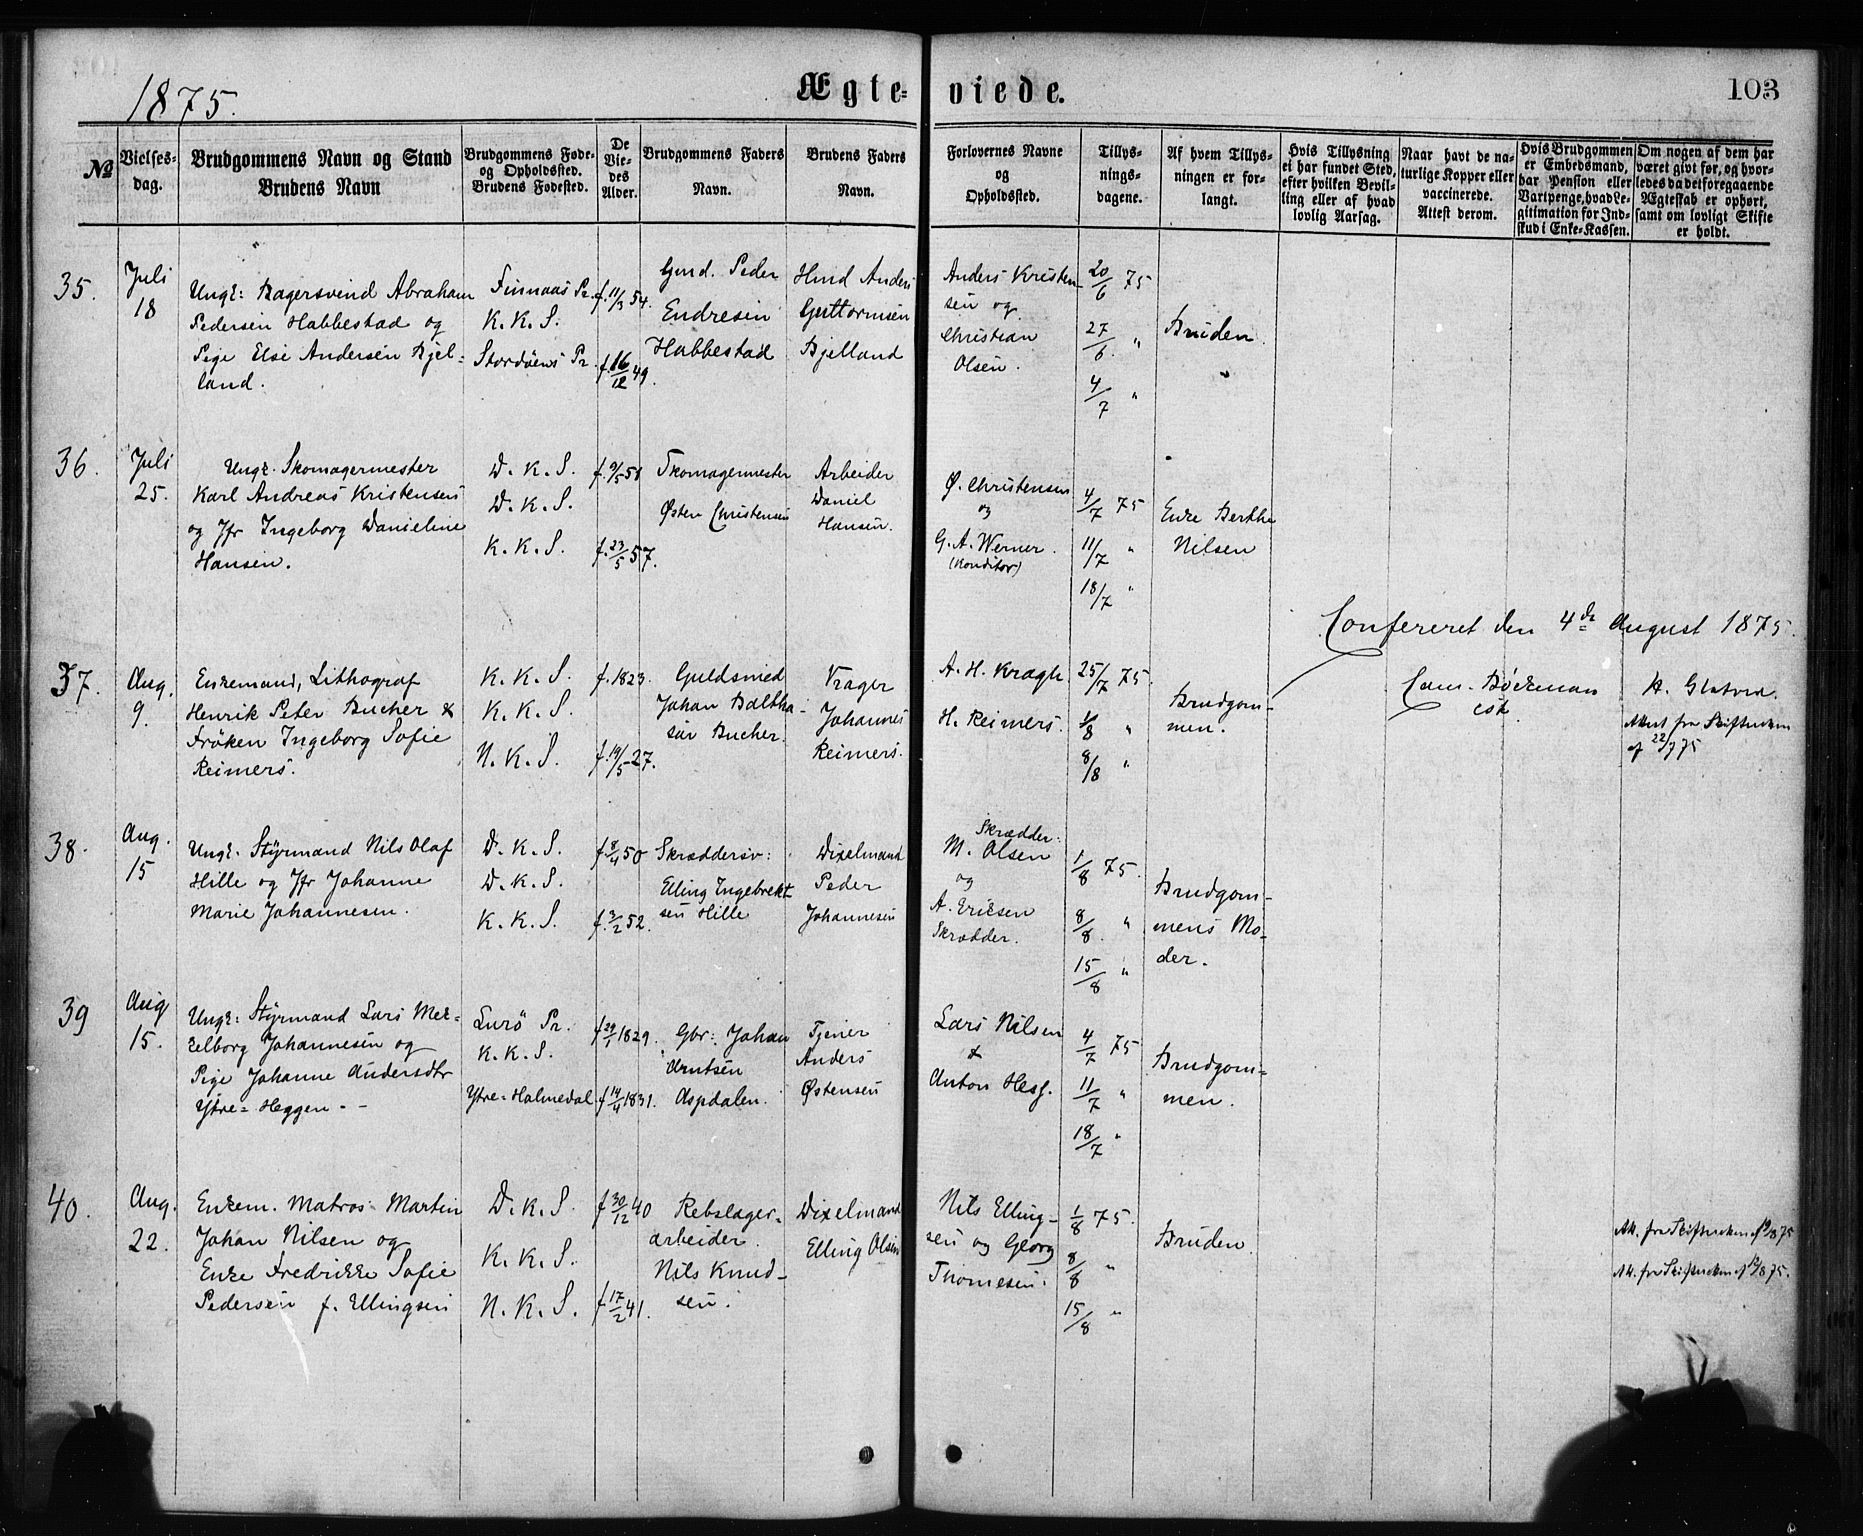 1875.
Ægte= viede.
103
№
Vielses-
dag.
Brudgommens Navn og Stand
Brudens Navn
Brudgommens Føde-
og Opholdssted.
Brudens Fødested.
De
Vie-
des
Alder.
Brudgommens Faders
Navn.
Brudens Faders
Navn.
Forlovernes Navne
og
Opholdssted.
Tillys-
nings-
dagene.
Af hvem Tillys-
ningen er for-
langt.
Hvis Tillysning
ei har fundet Sted,
efter hvilken Bevil-
ling eller af hvad
lovlig Aarsag.
Naar havt de na-
turlige Kopper eller
vaccinerede.
Attest derom.
Hvis Brudgommen
er Embedsmand,
har Pension eller
Vartpenge, hvad Le-
gitimation for Ind-
skud i Enke-Kassen.
Om nogen af dem har
været givt før, og hvor-
ledes da det foregaaende
Ægteskab er ophørt,
samt om lovligt Skifte
er holdt.
35.
Juli
18
Ungk: Bagersvend Abraham
Pedersen Habbestad og
Pige Else Andersen Bjel=
land.
Finnaas Pr.
K. K. S.
Stordøens Pr.
f. 11/3 54.
f. 16/12 49.
Gmd. Peder
Endresen
Habbestad
Hmd Anders
Guttormsen
Bjelland
Anders Kristen-
sen og
Christian
Olsen.
20/6 75
27/6 "
4/7 "
Bruden.
36.
Juli
25.
Ungk. Skomagermester
Karl Andreas Kristensen
og Jfr Ingeborg Danieline
Hansen.
D. K. S.
D. K. S.
K. K. S.
f. 23/5 57.
Skomagermester
Østen Christensen
Arbeider
Daniel
Hansen.
Ø. Christensen
og
G. A. Werner.
(Konditor)
4/7 75
11/7 "
18/7 "
Enke Berthe
Nilsen
Confereret den 4de August 1875.
37.
Aug.
9.
Enkemand, Lithograf
Henrik Peter Bucher &
Frøken Ingeborg Sofie
Reimers.
K. K. S.
K. K. S.
N. K. S.
f. 1823.
f. 19/5 27.
Guldsmed
Johan Baltha-
sar Bucher.
Vrager
Johannes
Reimers.
A. H. Kragh
H. Reimers.
25/7 75.
1/8 "
8/8 "
Brudgom-
men.
Cam. Bøckman
H. Glatved.
Attest fra Skifteretten
af 22/7 75
38.
Aug.
15
Ungk. Styrmand Nils Olaf
Hille og Jfr Johanne
Marie Johannesen.
D. K. S.
D. K. S.
K. K. S.
f. 8/4 50
f. 3/2 52.
Skræddersv:
Elling Ingebrekt-
sen Hille
Dixelmand
Peder
Johannesen
Skrædder:
M. Olsen
og
A. Ericsen
Skrædder.
1/8 75.
8/8. "
15/8 "
Brudgom-
mens Mo-
der.
39
Aug
15.
Ungk: Styrmand Lars Mek=
kelborg Johannesen og
Pige Johanne Andersdtr
Ytre= Heggen. -
Lurø Pr.
K. K. S.
Ytre= Holmedal
f 29/1 1829.
f 14/4 1831.
Gbr: Johan
Arntsen
Aspdalen.
Tjener
Anders
Østensen
Lars Nilsen
&
Anton Hess.
4/7 75
11/7 "
18/7 "
Brudgom=
men.
40.
Aug.
22.
Enkem. Matros Martin
Johan Nilsen og
Enke Fredrikke Sofie
Pedersen f. Ellingsen
D. K. S.
K. K. S.
N. K. S.
f 30/12 40
f. 17/2 41.
Rebslager=
arbeider
Nils Knud-
sen.
Dixelmand
Elling Olsen
Nils Elling-
sen og Georg
Thomesen.
1/8 75.
8/8 "
15/8 "
Bruden.
Att. fra Skifteretten af /8 75
Att. fra Skifteretten af /8 75.